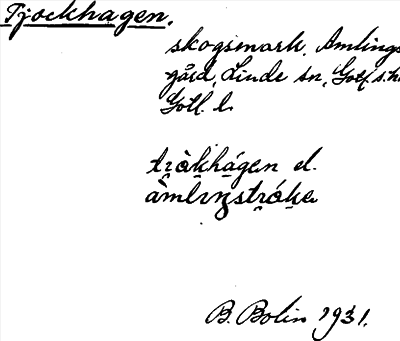 Tjockhagen.
skogsmark, Amlings
gård, Linde sn, Gotl. s. h
Gotl. l.
tràkhágen el.
àmlıŋstráka
B. Bolin 1931.